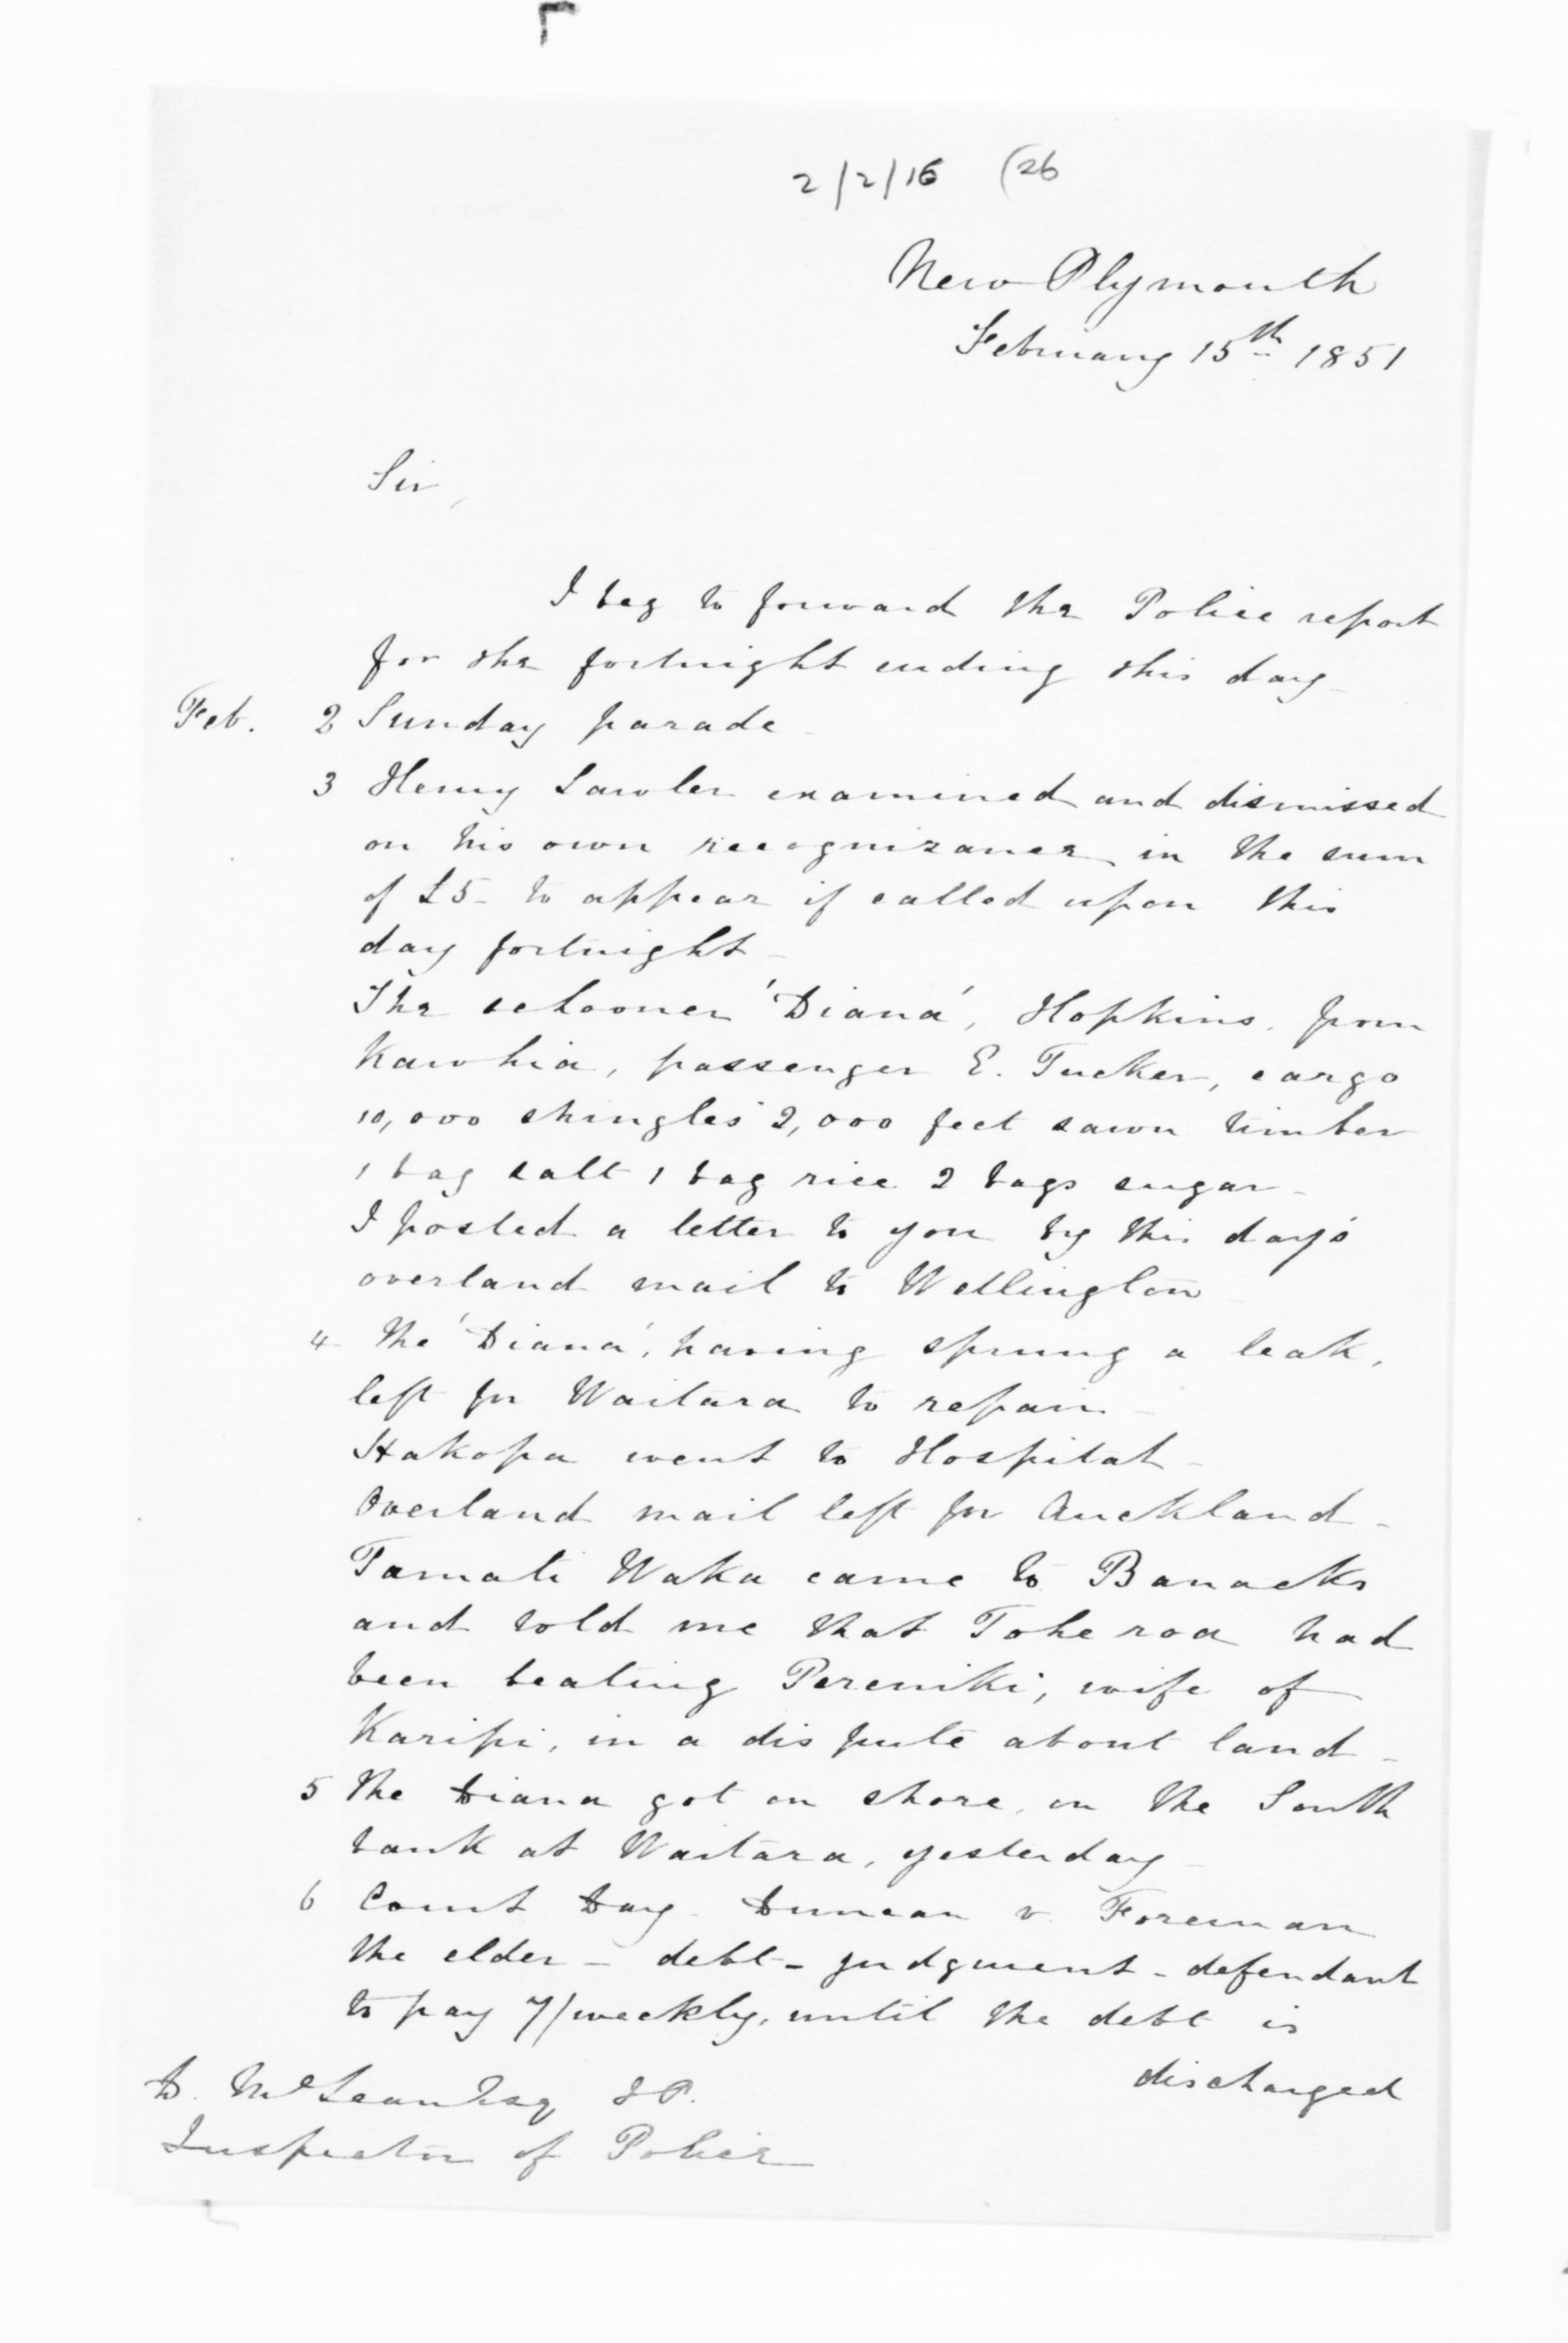 2/2/16 (26
New Plymouth
February 15th 1851
Sir,
I beg to forward the Police report
for the fortnight ending this day
Feb. 2 Sunday parade
3 Henry Lawler examined and dismissed
on his own recognizances in the sum
of £5 - to appear if called upon this
day fortnight -
The schooner 'Diana', Hopkins, from
Kawhia, passenger E. Tucker, cargo
10,000 shingles 2,000 feet sawn timber
1 bag salt 1 bag rice 2 bags sugar -
I posted a letter to you by this day's
overland mail to Wellington
4 The 'Diana', having sprung a leak,
left for Waitara to repair -
Hakopa went to Hospital -
Overland mail left for Auckland -
Tamati Waka came to Barracks
and told me that Toheroa had
been beating Pereniki, wife of
Karipi, in a dispute about land -
5 The Diana got on shore, on the South
bank at Waitara, yesterday -
6 Court Day - Duncan v. Foreman
the elder - debt - judgment - defendant
to pay 7/ weekly, until the debt is
discharged
D. McLean Esq J.P.
Inspector of Police